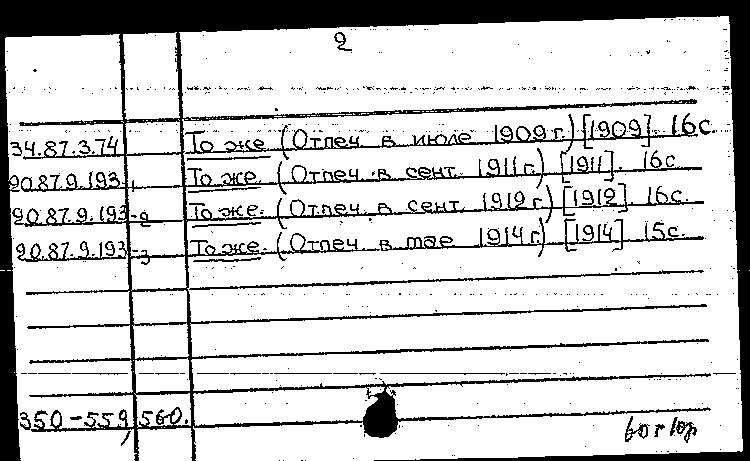 2
34.87.3.74 То же (Отпеч в июле 1909 г.) [1909]. 16с.
20.87.9.193-1 То же. (Отпеч. в сент. 1911 г.) [1911]. 16с.
20.87.9.193-2 То же. (Отпеч. в сент. 1912 г.) [1912]. 16с.
20.87.9.193-3 То же. (Отпеч. в мае 1914 г.) [1914]. 15с.
350-559, 560.